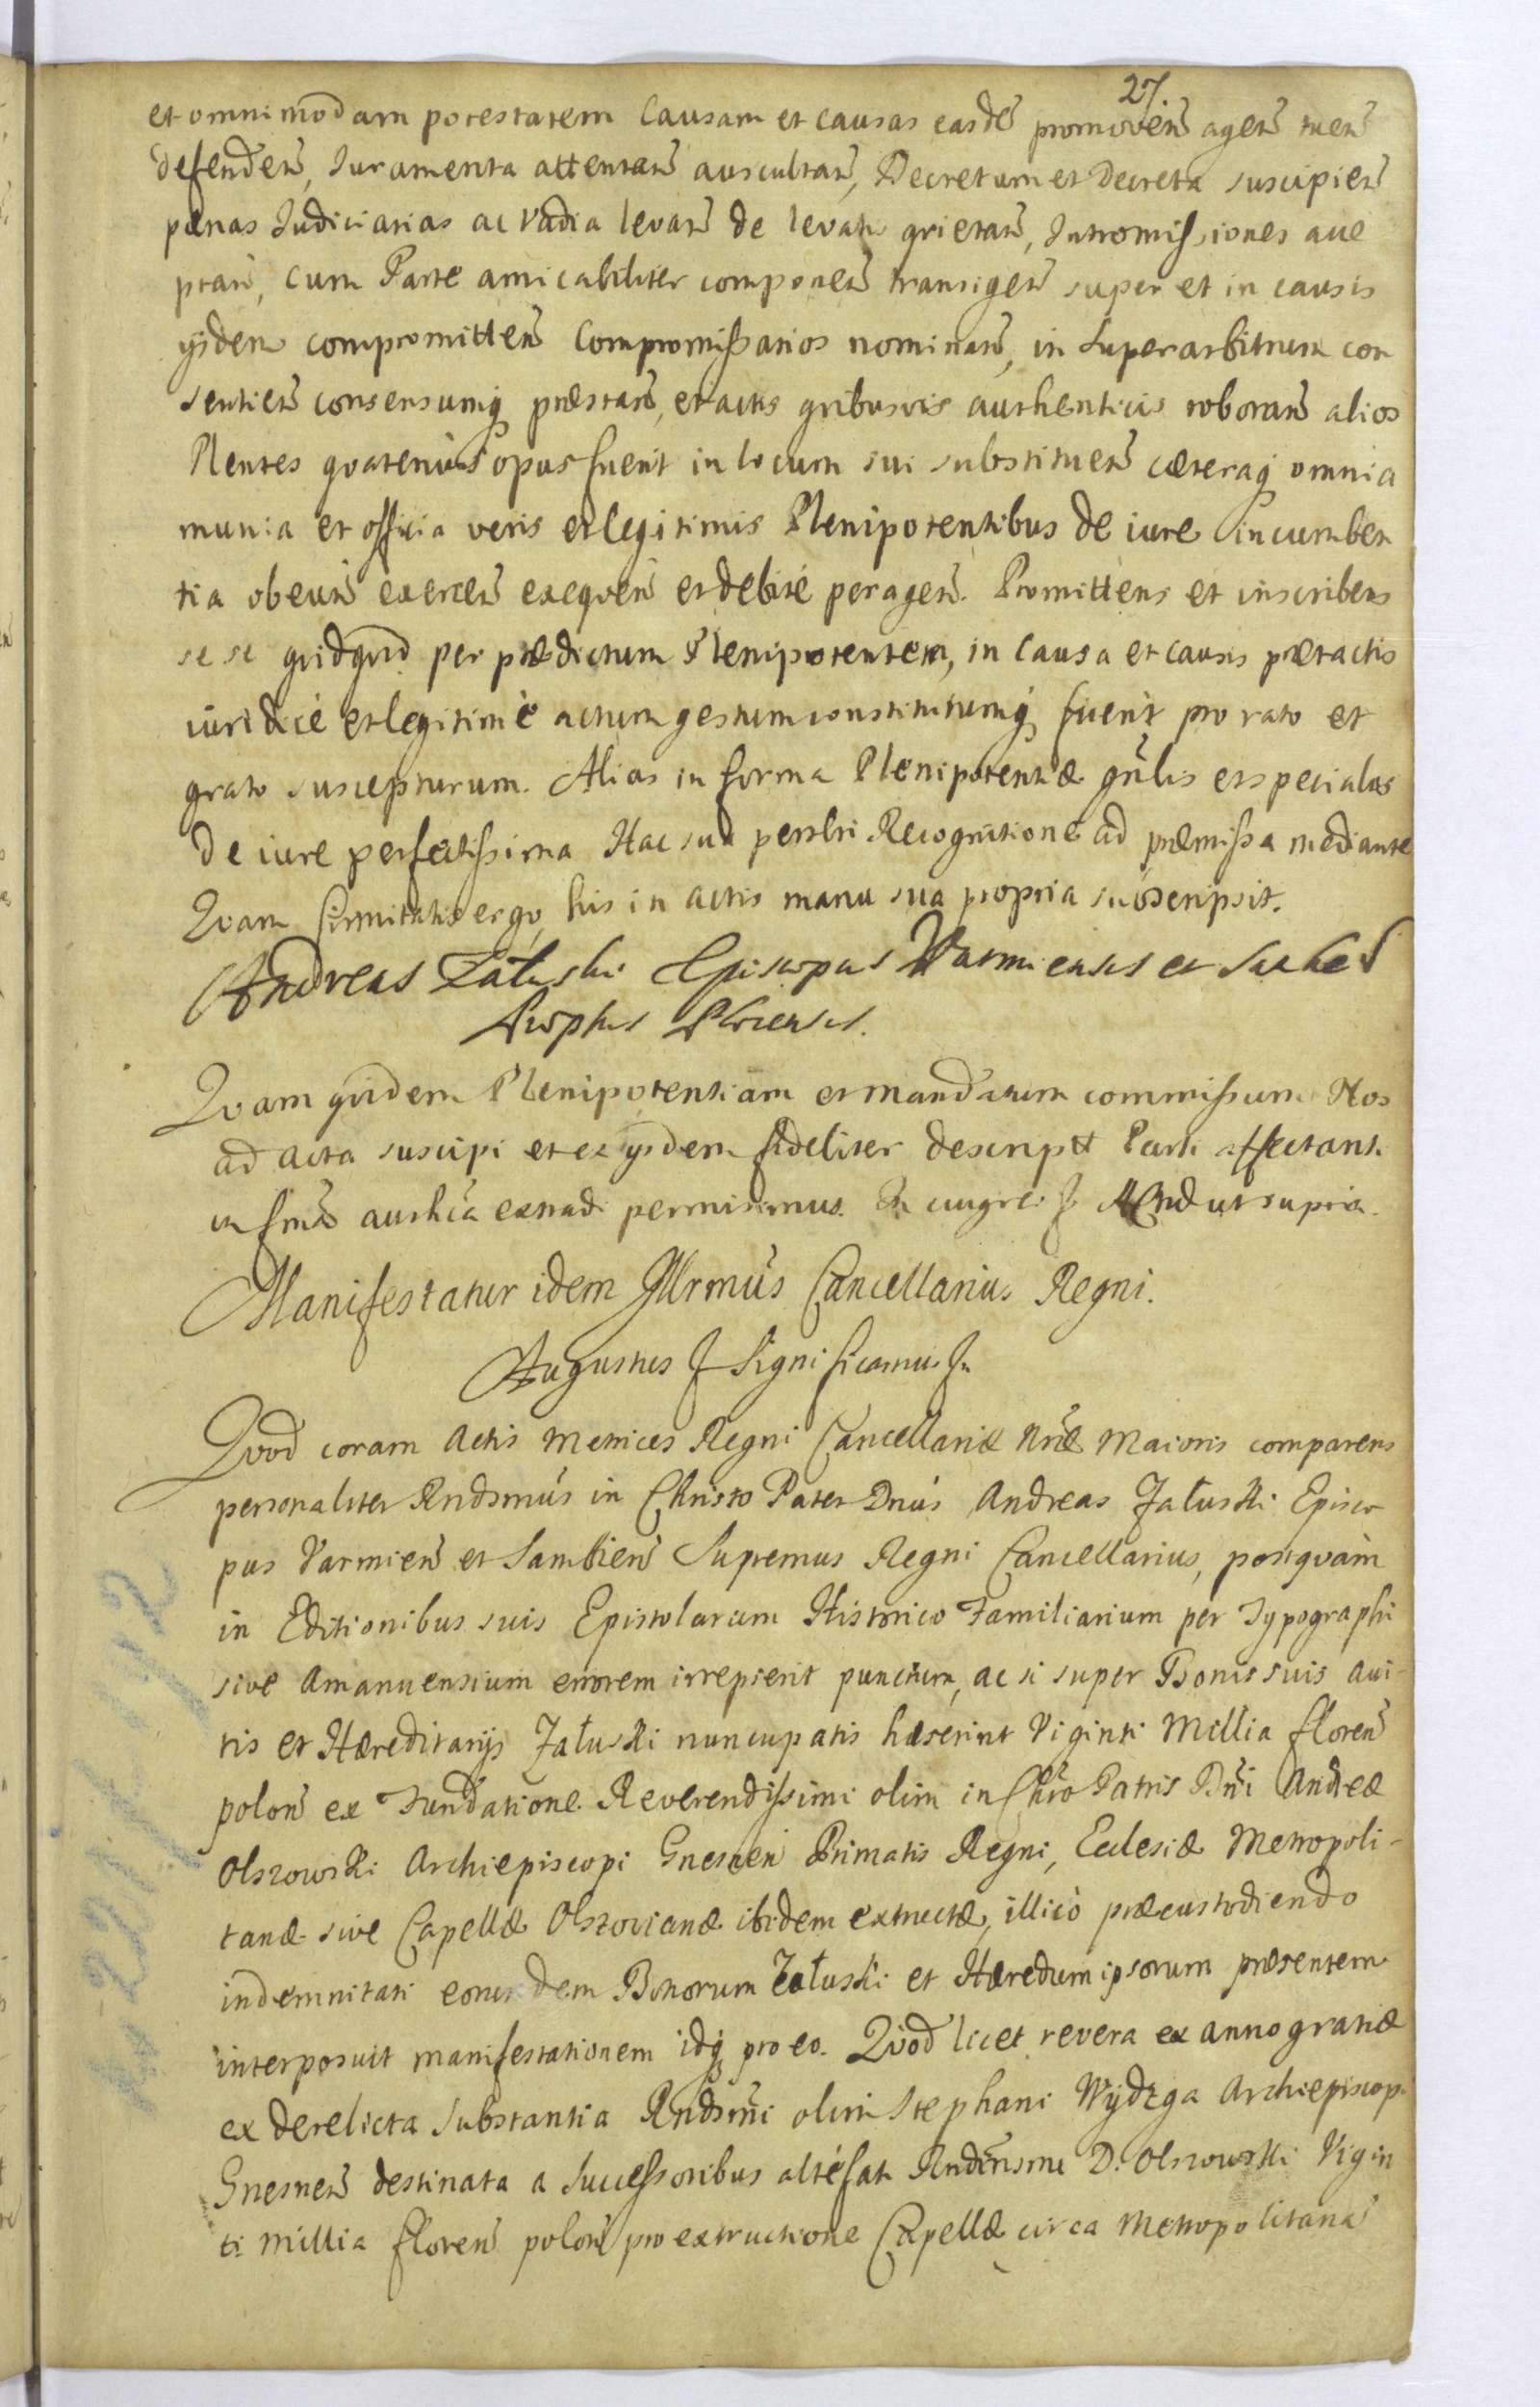 27.
et omnimodam potestatem Causam et causas easdē promoveñ ageñ tueñ
defendeñ, Juramenta attentañ auscultañ, Decretum et Decreta suscipieñ
pænas Judiciarias ac Vadia levañ de levatis qvietañ, Intromissiones acce
ptañ, cum Parte amicabiliter componeñ transigeñ super et in causis
ijsdem compromitteñ Compromissarios nominañ, in Superarbitrum con
sentieñ consensumq præstañ, et actis qvibusvis authenticis roborañ alios
Plentes qvatenus opus fuerit in locum sui substitueñ cæteraq omnia
munia et officia veris et legitimis Plenipotentibus de iure incumben
tia obeuñ exerceñ exeqveñ et debite perageñ. Promittens et inscribens
sese qvidqvid per prædictum Plenipotentem, in Causa et causis prætactis
iuridicè et legitimè actum gestum constitutumq fuerit, pro rato et
grato suscepturum. Alias in forma Plenipotentiæ gñlis et specialis
de iure perfectissima Hac sua pentbri Recognitione ad præmissa mediante
Qvam firmitatis ergo, his in actis manu sua propria subscripsit.
Andreas Załuski Episcopus Warmiensis et
Qvam qvidem Plenipotentiam et mandatum commissum Nos
ad acta suscipi et ex ijsdem fideliter descriptt Parti affectanti
in fmā authcā extradi permisimus. In cuius rei &
Manifestatur idem Jllrmūs Cancellarius Regni.
Augustus & Significamus &
Qvod coram Actis Metrices Regni Cancellariæ Nræ Maioris comparens
personaliter Rndsmus in Christo Pater Dnūs Andreas Załuski Episco
pus Varmieñ et Sambieñ Supremus Regni Cancellarius, postqvàm
in Editionibus suis Epistolarum Historico Familiarium per Typographi
sive Amanuensium errorem irrepserit punctum, ac si super Bonis suis Avi-
tis et Hæreditarijs Załuski nuncupatis hæserint Viginti Millia floreñ
poloñ ex Fundatione Reverendissimi olim in Chro Patris Dñi Andreæ
Olszowski Archiepiscopi Gnesneñ Primatis Regni, Ecclesiæ Metropoli-
tanæ sive Capellæ Olszovianæ ibidem extructæ, illicò præcustodiendo
indemnitati eorundem Bonorum Załuski et Hæredum ipsorum præsentem
interposuit manifestationem idq pro eo. Qvod licet revera ex anno gratiæ
ex derelicta Substantia Rndsmi olim Stephani Wydzga Archiepiscopi
Gnesneñ destinata a Successoribus altefati Rndmsmi D. Olszowski Vigin
ti millia floreñ poloñ pro extructione Capellæ circa Metropolitanā